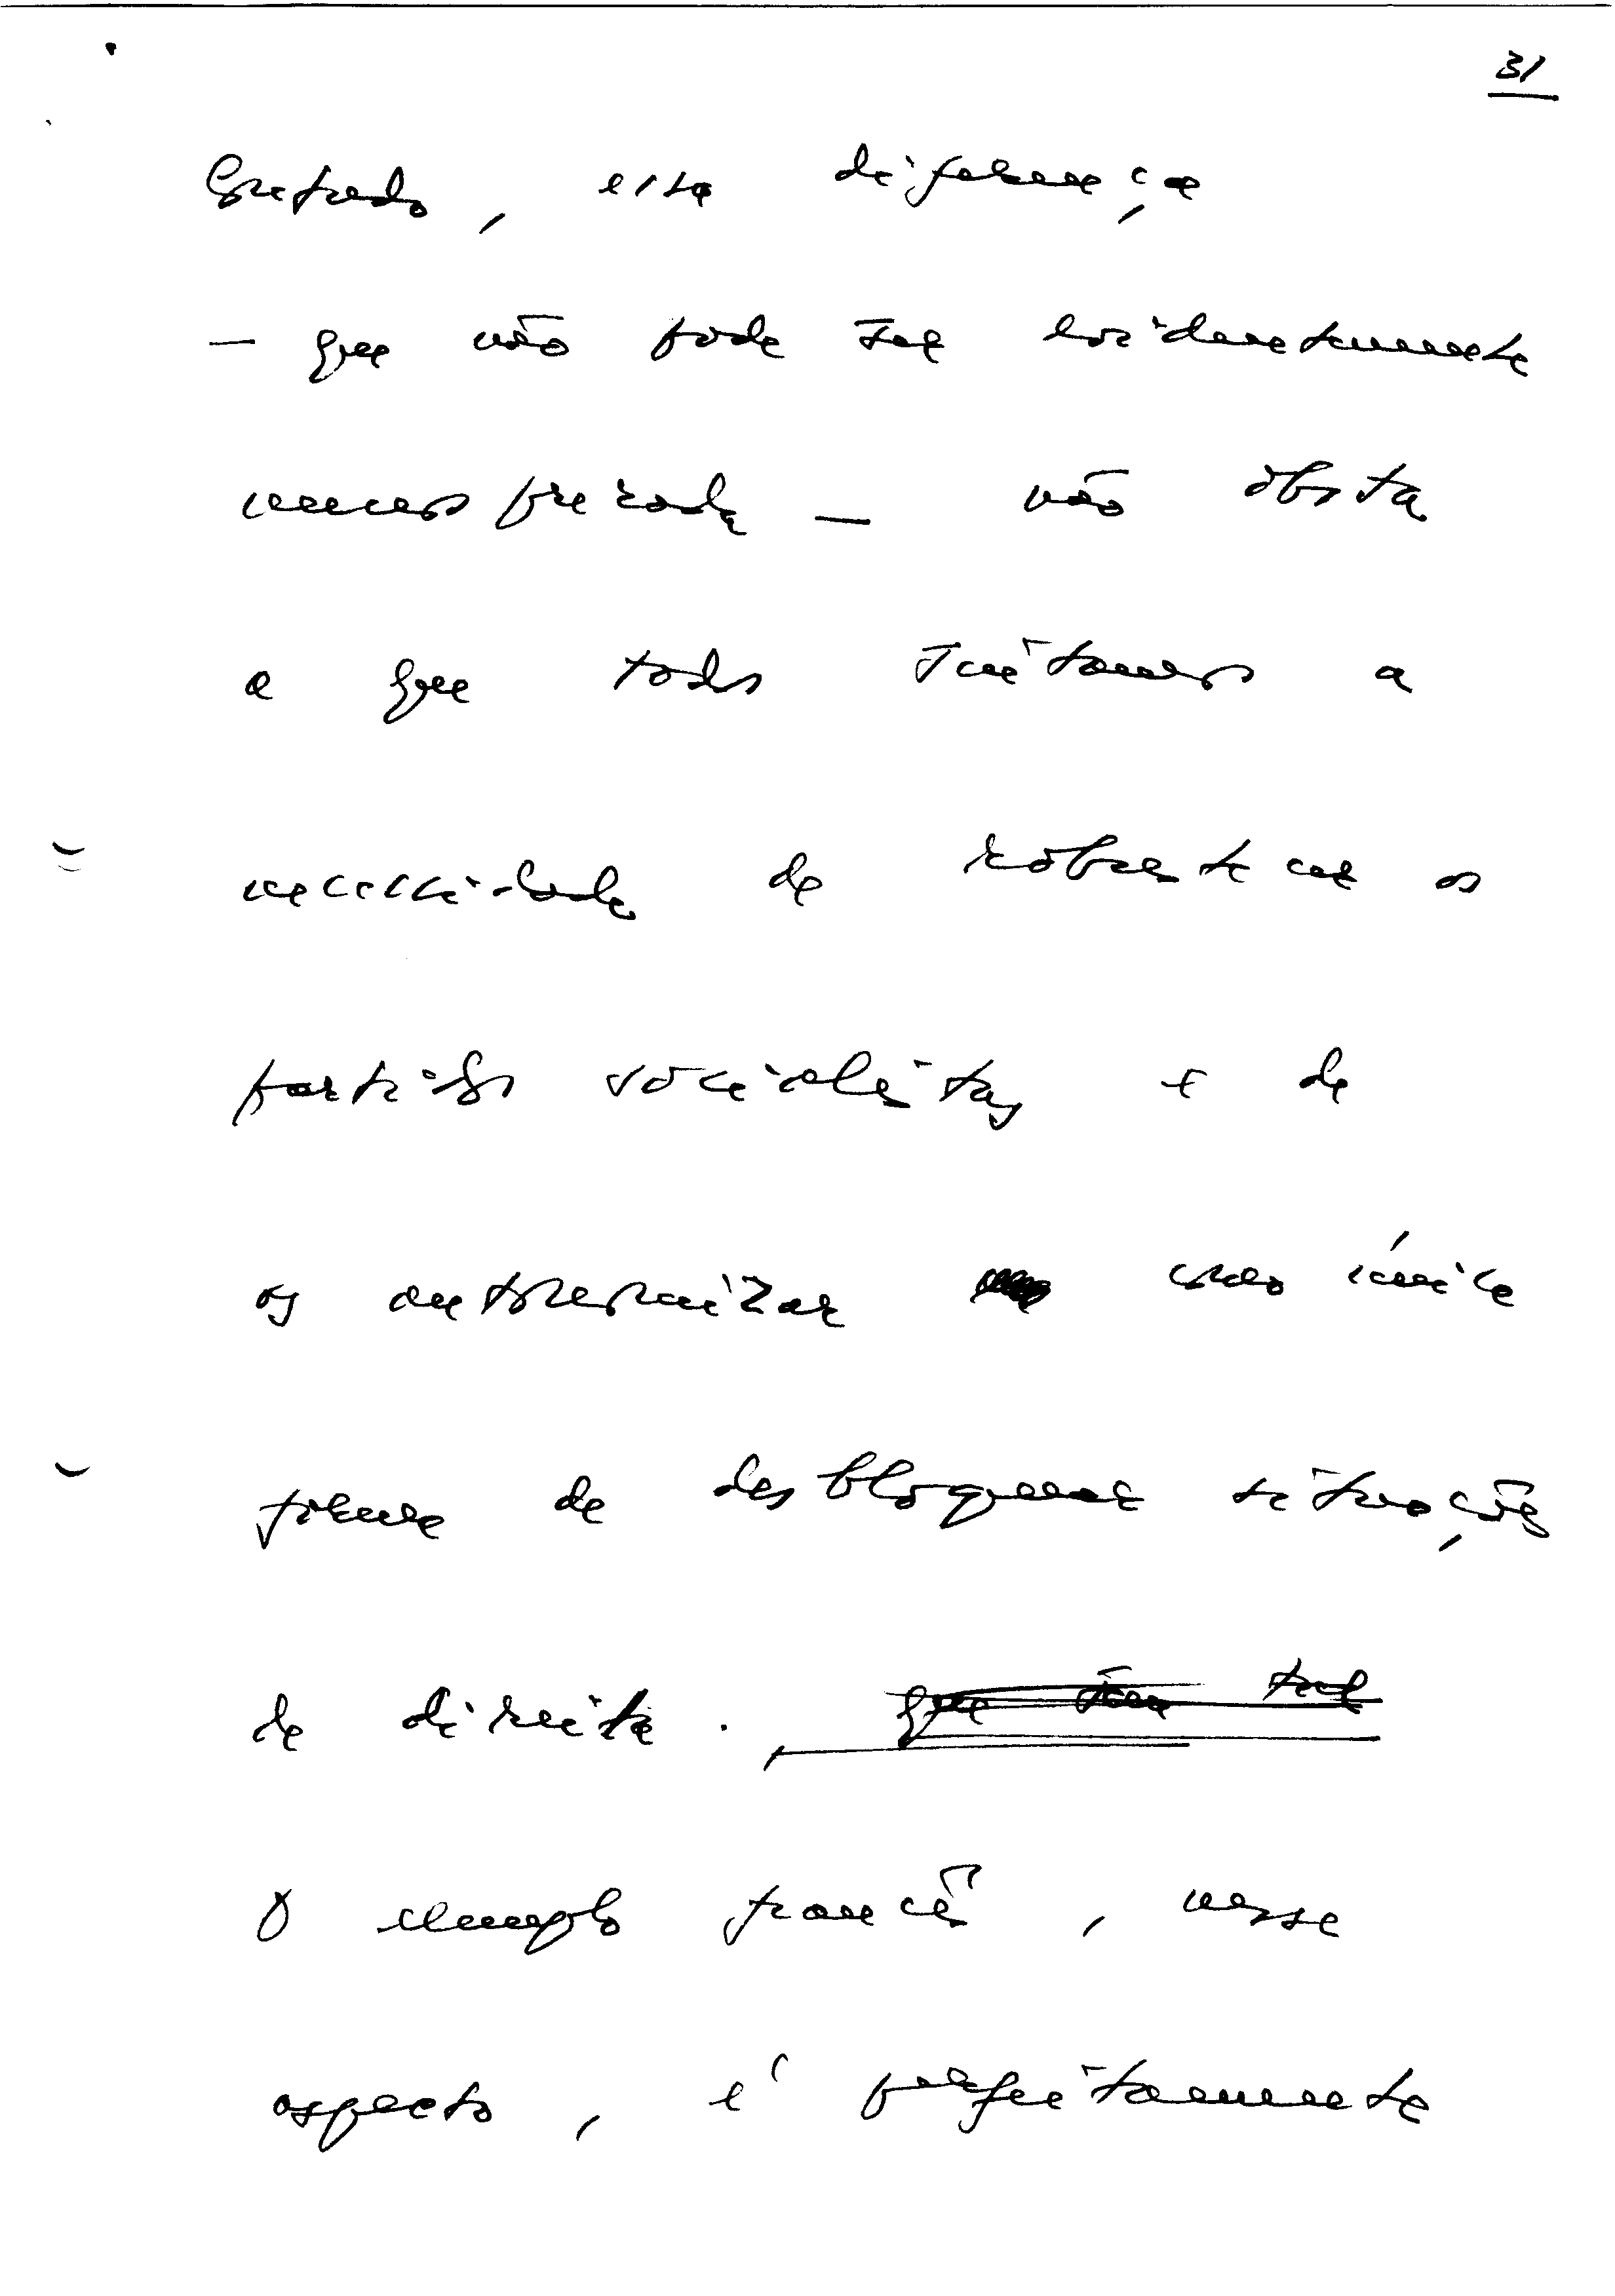 31
Contudo, essa diferença
— que não pode ser evidentemente
menosprezada — não obsta
a que todos sintamos a
necessidade de robustecer os
partidos socialistas e de
os autonomizar como única
forma de desbloquear situações
de direita. , que tem tal
O exemplo francês, nesse
aspecto, é perfeitamente